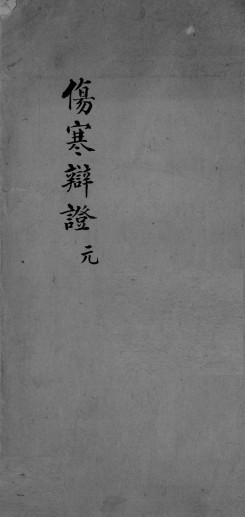 傷寒辯證 元